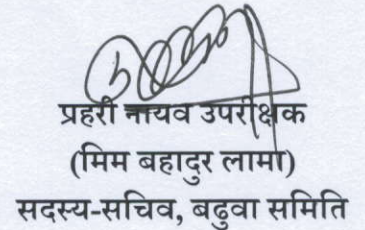 प्रहरी नायव उपरीक्षक
(मिम बहादुर लामा)
सदस्य-सचिव, बढुवा समिति